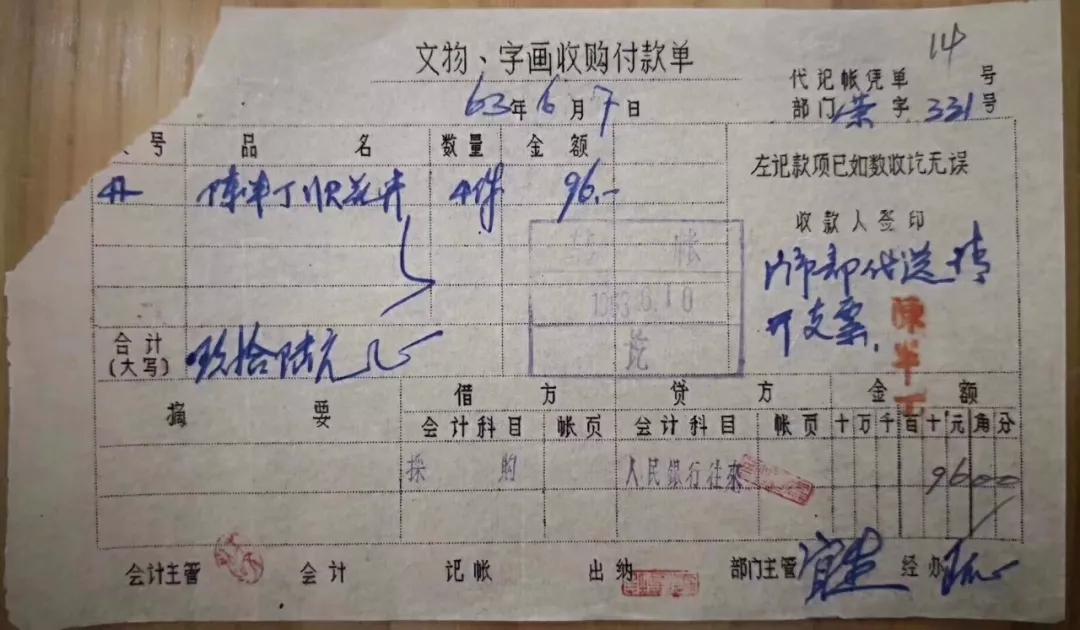 14
文物、字画收购付款单
代记帐凭单 号
63年6月7日
部门 荣 字 331 号
号 品 名 数量 金额
左记款项已如数收讫无误
陈半丁 花卉 4件 96.—
收款人签印
帐
门市部代送 请
1963.6.10
开支票.
陳半丁
讫
合计 玖拾陆元
(大写)
摘 要 借 方 贷 方 金 额
会计科目 帐页 会计科目 帐页 十万千百十元角分
採 购 人民银行往来 9600
会计主管 会计 记帐 出纳 部门主管 经办